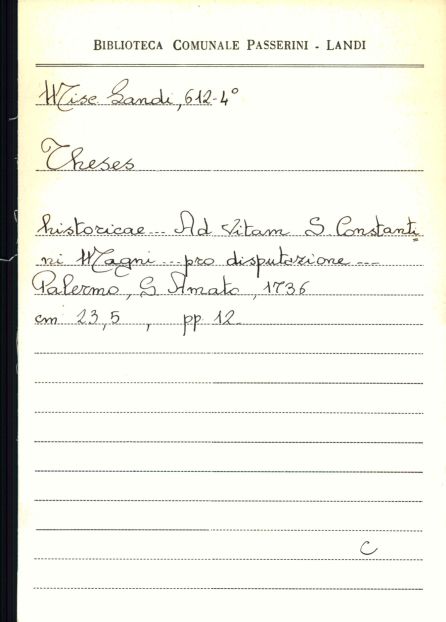 BIBLIOTECA COMUNALE PASSERINI - LANDI
Misc Landi, 612-4°
Theses
historicae... Ad vitam S. Constanti=
ni Magni... pro disputazione ...
Palermo, S Amato, 1736
cm 23,5 , pp 12.
C